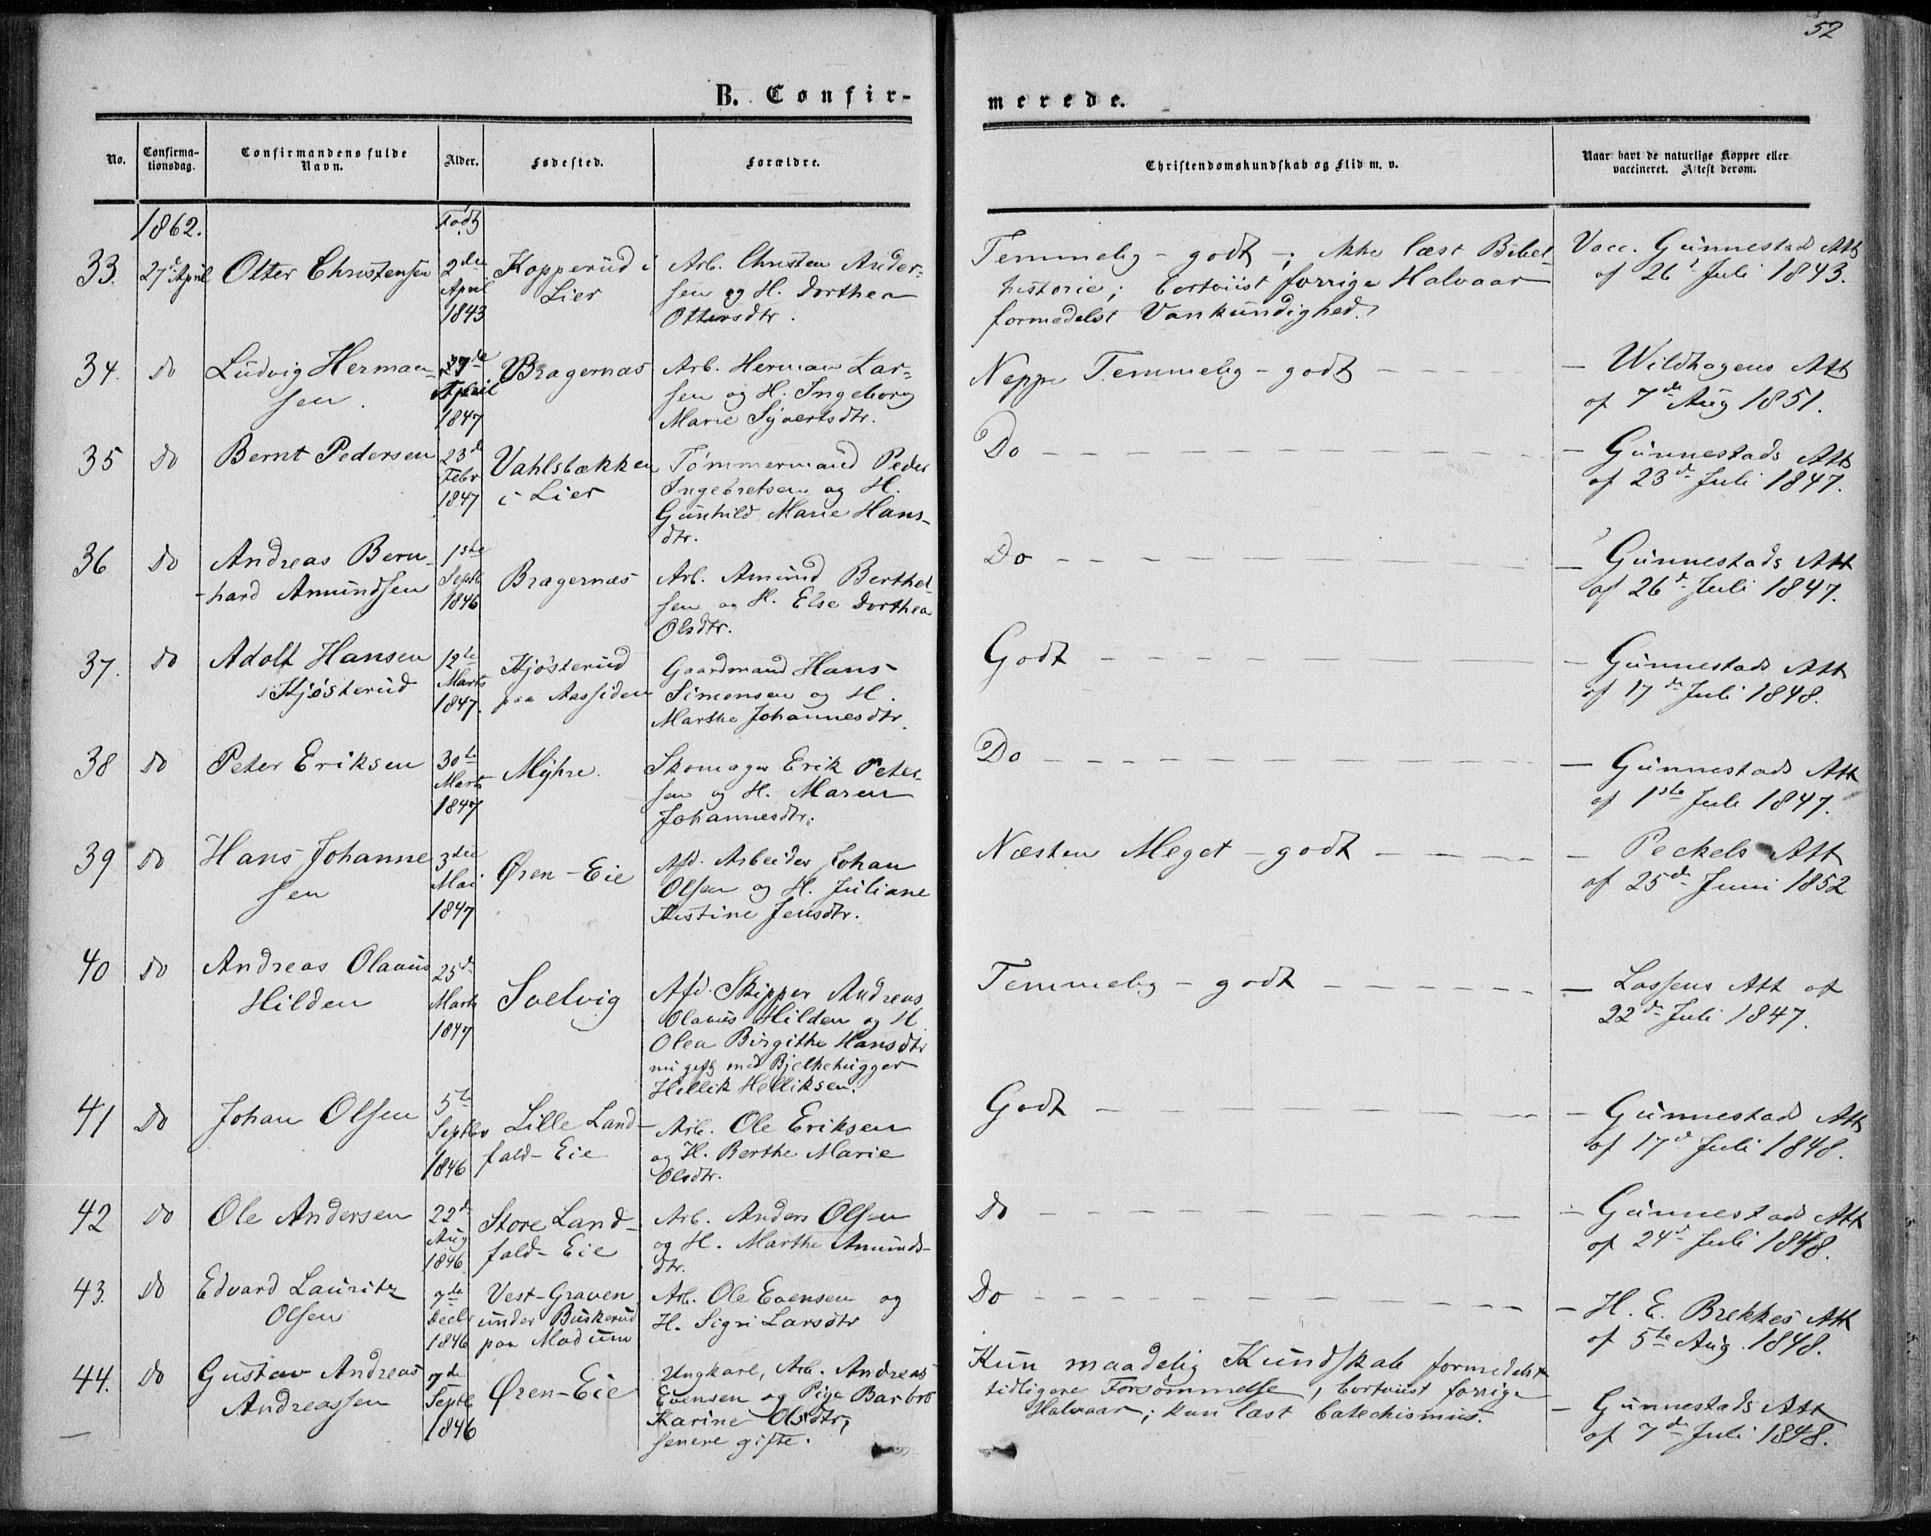 52
B. Confir-
merede.
No.
Confirma-
tionsdag.
Confirmandens fulde
Navn.
Alder.
Fødested.
Forældre.
Christendomskundskab og Flid m. v.
Naar havt de naturlige Kopper eller
vaccineret. Attest derom.
1862.
Født
33. 27d April Otter Christensen 2den April 1843 Kopperud i Lier
Arb. Christen Ander-
sen og H. Dorthea
Ottersdtr.
Temmelig - godt -; ikke læst Bibel-
historie; bortviist forrige Halvaar
formedelst Vankundighed.
Vacc. Gunnestads Att
af 26d Juli 1843.
34. Do Ludvig Herman-
sen.
27de April 1847
Bragernæs
Arb. Herman Lar-
sen og H. Ingeborg
Marie Syvertsdtr.
Neppe Temmelig - godt
— Wildhagens Att
af 7de Aug 1851.
35 Do Bernt Pedersen
23d Febr 1847
Vahlsbækken
i Lier
Tømmermand Peder
Ingebretsen og H.
Gunhild Marie Hans-
dtr.
Do
— Gunnestads Att
af 23d Juli 1847.
36 Do Andreas Bern-
hard Amundsen
1ste Septb 1846
Bragernæs
Arb. Amund Berthel-
sen og H. Else Dorthea
Olsdtr.
Do
— Gunnestads Att
af 26d Juli 1847.
37. Do Adolf Hansen
Kjøsterud
12te Marts 1847.
Kjøsterud
paa Aassiden
Gaardmand Hans
Simonsen og H.
Marthe Johannesdtr.
Godt
— Gunnestads Att
af 17de Juli 1848.
38 Do Peter Eriksen
30te Marts 1847
Myhre.
Skomager Erik Peter-
sen og H. Maren
Johannesdtr.
Do
— Gunnestads Att
af 1ste Juli 1847.
39 Do Hans Johanne
sen
3die Mai 1847
Øren-Eie
Afd. Arbeider Johan
Olsen og H. Juliane
Kistine Jensdtr.
Næsten Meget - godt
— Peckels Att
af 25d Juni 1852
40 Do Andreas Olaus
Hilden
25d Marts 1847
Svelvig
Afd. Skipper Andreas
Olaus Hilden og H.
Olea Birgithe Hansdtr
nu gift med Bjelkehugger
Hellik Helliksen.
Temmelig - godt
— Lassens Att af
22d Juli 1847.
41 Do Johan Olsen
5te Septbr 1846
Lille Land-
fald-Eie
Arb. Ole Eriksen
og H. Berthe Marie
Olsdtr.
Godt
— Gunnestads Att
af 17d Juli 1848.
42 Do Ole Andersen
22d Aug 1846
Store Land-
fald-Eie
Arb. Anders Olsen
og H. Marthe Amunds-
dtr.
Do
— Gunnestads Att
af 24d Juli 1848.
43. Do Edvard Lauritz
Olsen
7de Decbr 1846
Vest-Graven
under Buskerud
paa Modum
Arb. Ole Evensen og
H. Sigri Larsdtr
Do
— H. E. Brekkes Att
af 5te Aug. 1848.
44. Do Gustav Andreas
Andreassen
7de Septb 1846
Øren-Eie
Ungkarl, Arb. Andreas
Evensen og Pige Barbro
Karine Olsdtr,
senere gifte.
Kun maadelig Kundskab formedelst
tidligere Forsømmelse, bortviist forrige
Halvaar; kun læst Catechismus.
— Gunnestads Att
af 7de Juli 1848.